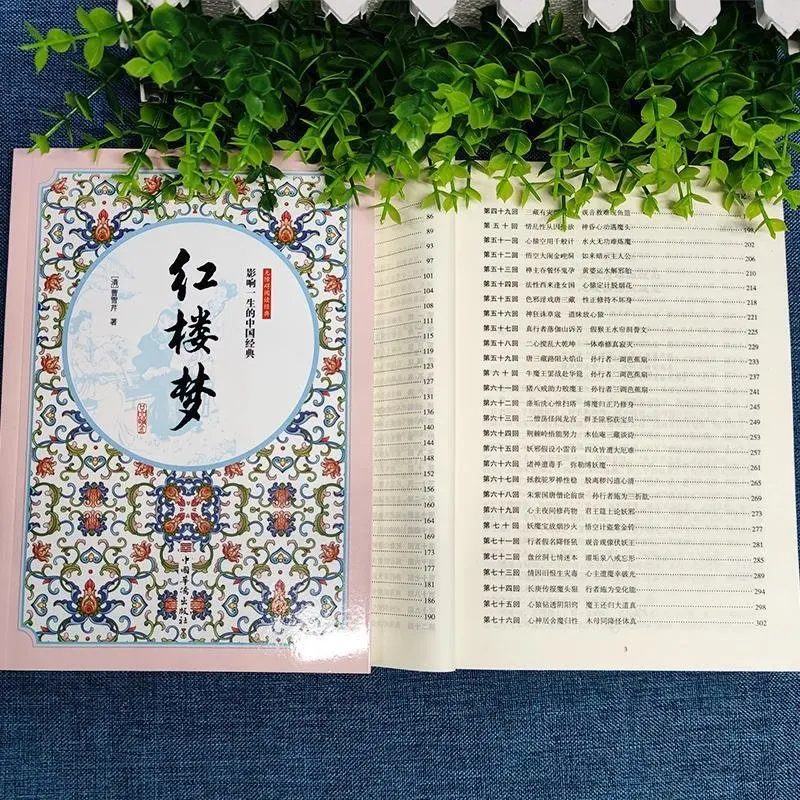 红楼梦
[清]曹雪芹 著
无障碍阅读经典
影响一生的中国经典
中国华侨出版社
86
90
93
97
101
105
108
111
115
119
123
127
132
137
141
145
149
152
156
160
164
169
173
177
182
186
190
第五十回 情乱性从因爱欲 神昏心动遇魔头 198
第五十一回 心猿空用千般计 水火无功难炼魔 202
第五十二回 悟空大闹金𫒰洞 如来暗示主人公 207
第五十三回 禅主吞餐怀鬼孕 黄婆运水解邪胎 210
第五十四回 法性西来逢女国 心猿定计脱烟花 214
第五十五回 色邪淫戏唐三藏 性正修持不坏身 218
第五十六回 神狂诛草寇 道昧放心猿 221
第五十七回 真行者落伽山诉苦 假猴王水帘洞誊文 225
第五十八回 二心搅乱大乾坤 一体难修真寂灭 229
第五十九回 唐三藏路阻火焰山 孙行者一调芭蕉扇
第六十回 牛魔王罢战赴华筵 孙行者二调芭蕉扇 237
第六十一回 猪八戒助力败魔王 孙行者三调芭蕉扇 241
第六十二回 涤垢洗心惟扫塔 缚魔归正乃修身 245
第六十三回 二僧荡怪闹龙宫 群圣除邪获宝贝 249
第六十四回 荆棘岭悟能努力 木仙庵三藏谈诗 253
第六十五回 妖邪假设小雷音 四众皆遭大厄难 257
第六十六回 诸神遭毒手 弥勒缚妖魔 261
第六十七回 拯救驼罗禅性稳 脱离秽污道心清 265
第六十八回 朱紫国唐僧论前世 孙行者施为三折肱 269
第六十九回 心主夜间修药物 君王筵上论妖邪 273
第七十回 妖魔宝放烟沙火 悟空计盗紫金铃 277
第七十一回 行者假名降怪犼 观音现像伏妖王 281
第七十二回 盘丝洞七情迷本 濯垢泉八戒忘形 285
第七十三回 情因旧恨生灾毒 心主遭魔幸破光 289
第七十四回 长庚传报魔头狠 行者施为变化能 294
第七十五回 心猿钻透阴阳窍 魔王还归大道真 298
第七十六回 心神居舍魔归性 木母同降怪体真 302
3